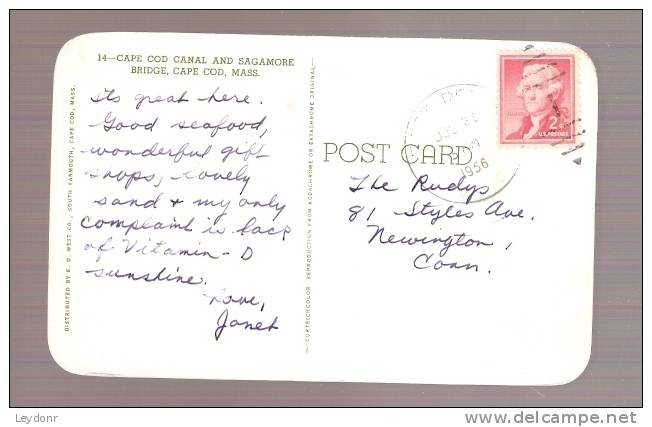 14—CAPE COD CANAL AND SAGAMORE
BRIDGE, CAPE COD, MASS.
Its great here.
Good seafood,
wonderful gift
shops, lovely
sand & my only
complaint is lack
of Vitamin-D
sunshine.
Love,
Janet
DISTRIBUTED BY E. D. WEST CO., SOUTH YARMOUTH, CAPE COD, MASS.
—CURTEICHCOLOR REPRODUCTION FROM KODACHROME OR EKTACHROME ORIGINAL—
POST CARD
JUL 25
1956
2¢
U.S. POSTAGE
The Rudys
81 Styles Ave.
Newington,
Conn.
Leydonr
www.delcampe.net